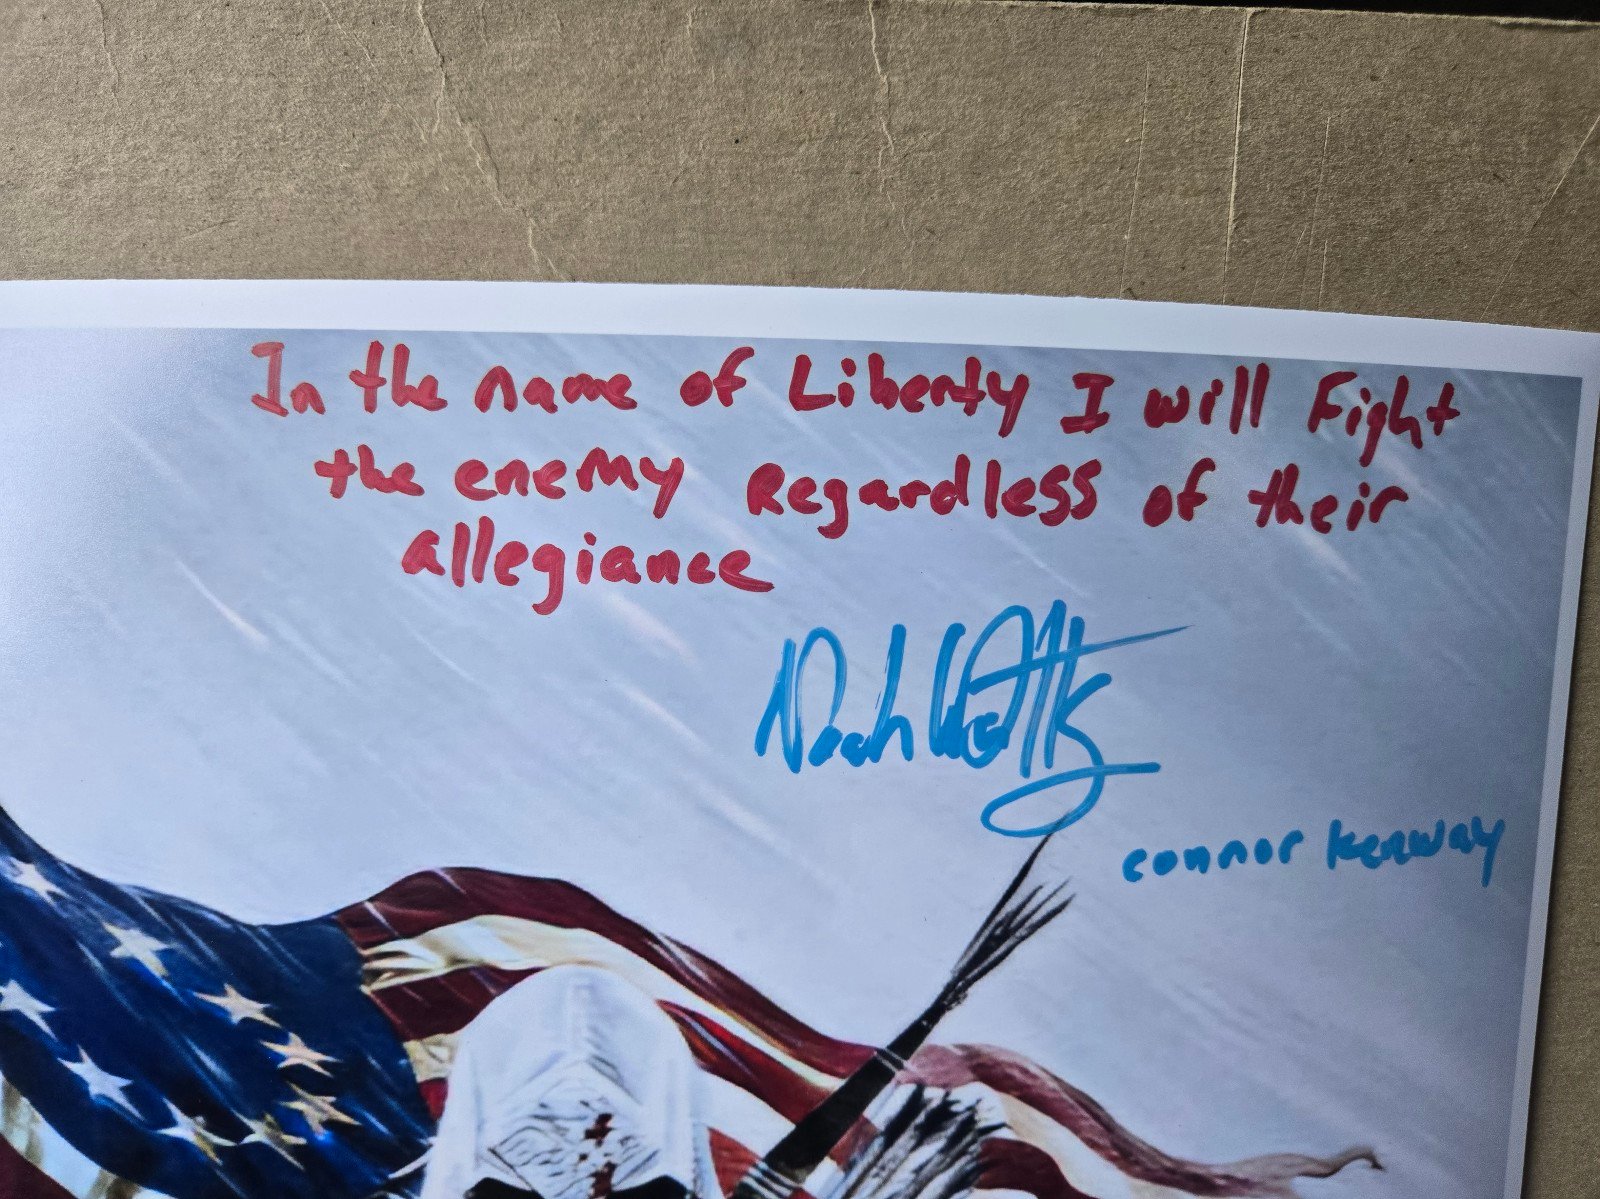 In the name of Liberty I will Fight
the enemy Regardless of their
allegiance
Noah Watts
connor kenway